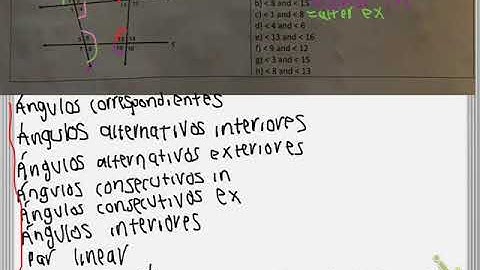 b) < 8 and < 15
c) < 1 and < 8 =alter ex
d) < 4 and < 6
e) < 13 and < 16
f) < 9 and < 12
g) < 3 and < 15
h) < 8 and < 13
Ángulos correspondientes
Ángulos alternativos interiores
Ángulos alternativos exteriores
Ángulos consecutivos in
Ángulos consecutivos ex
Ángulos interiores
Par linear